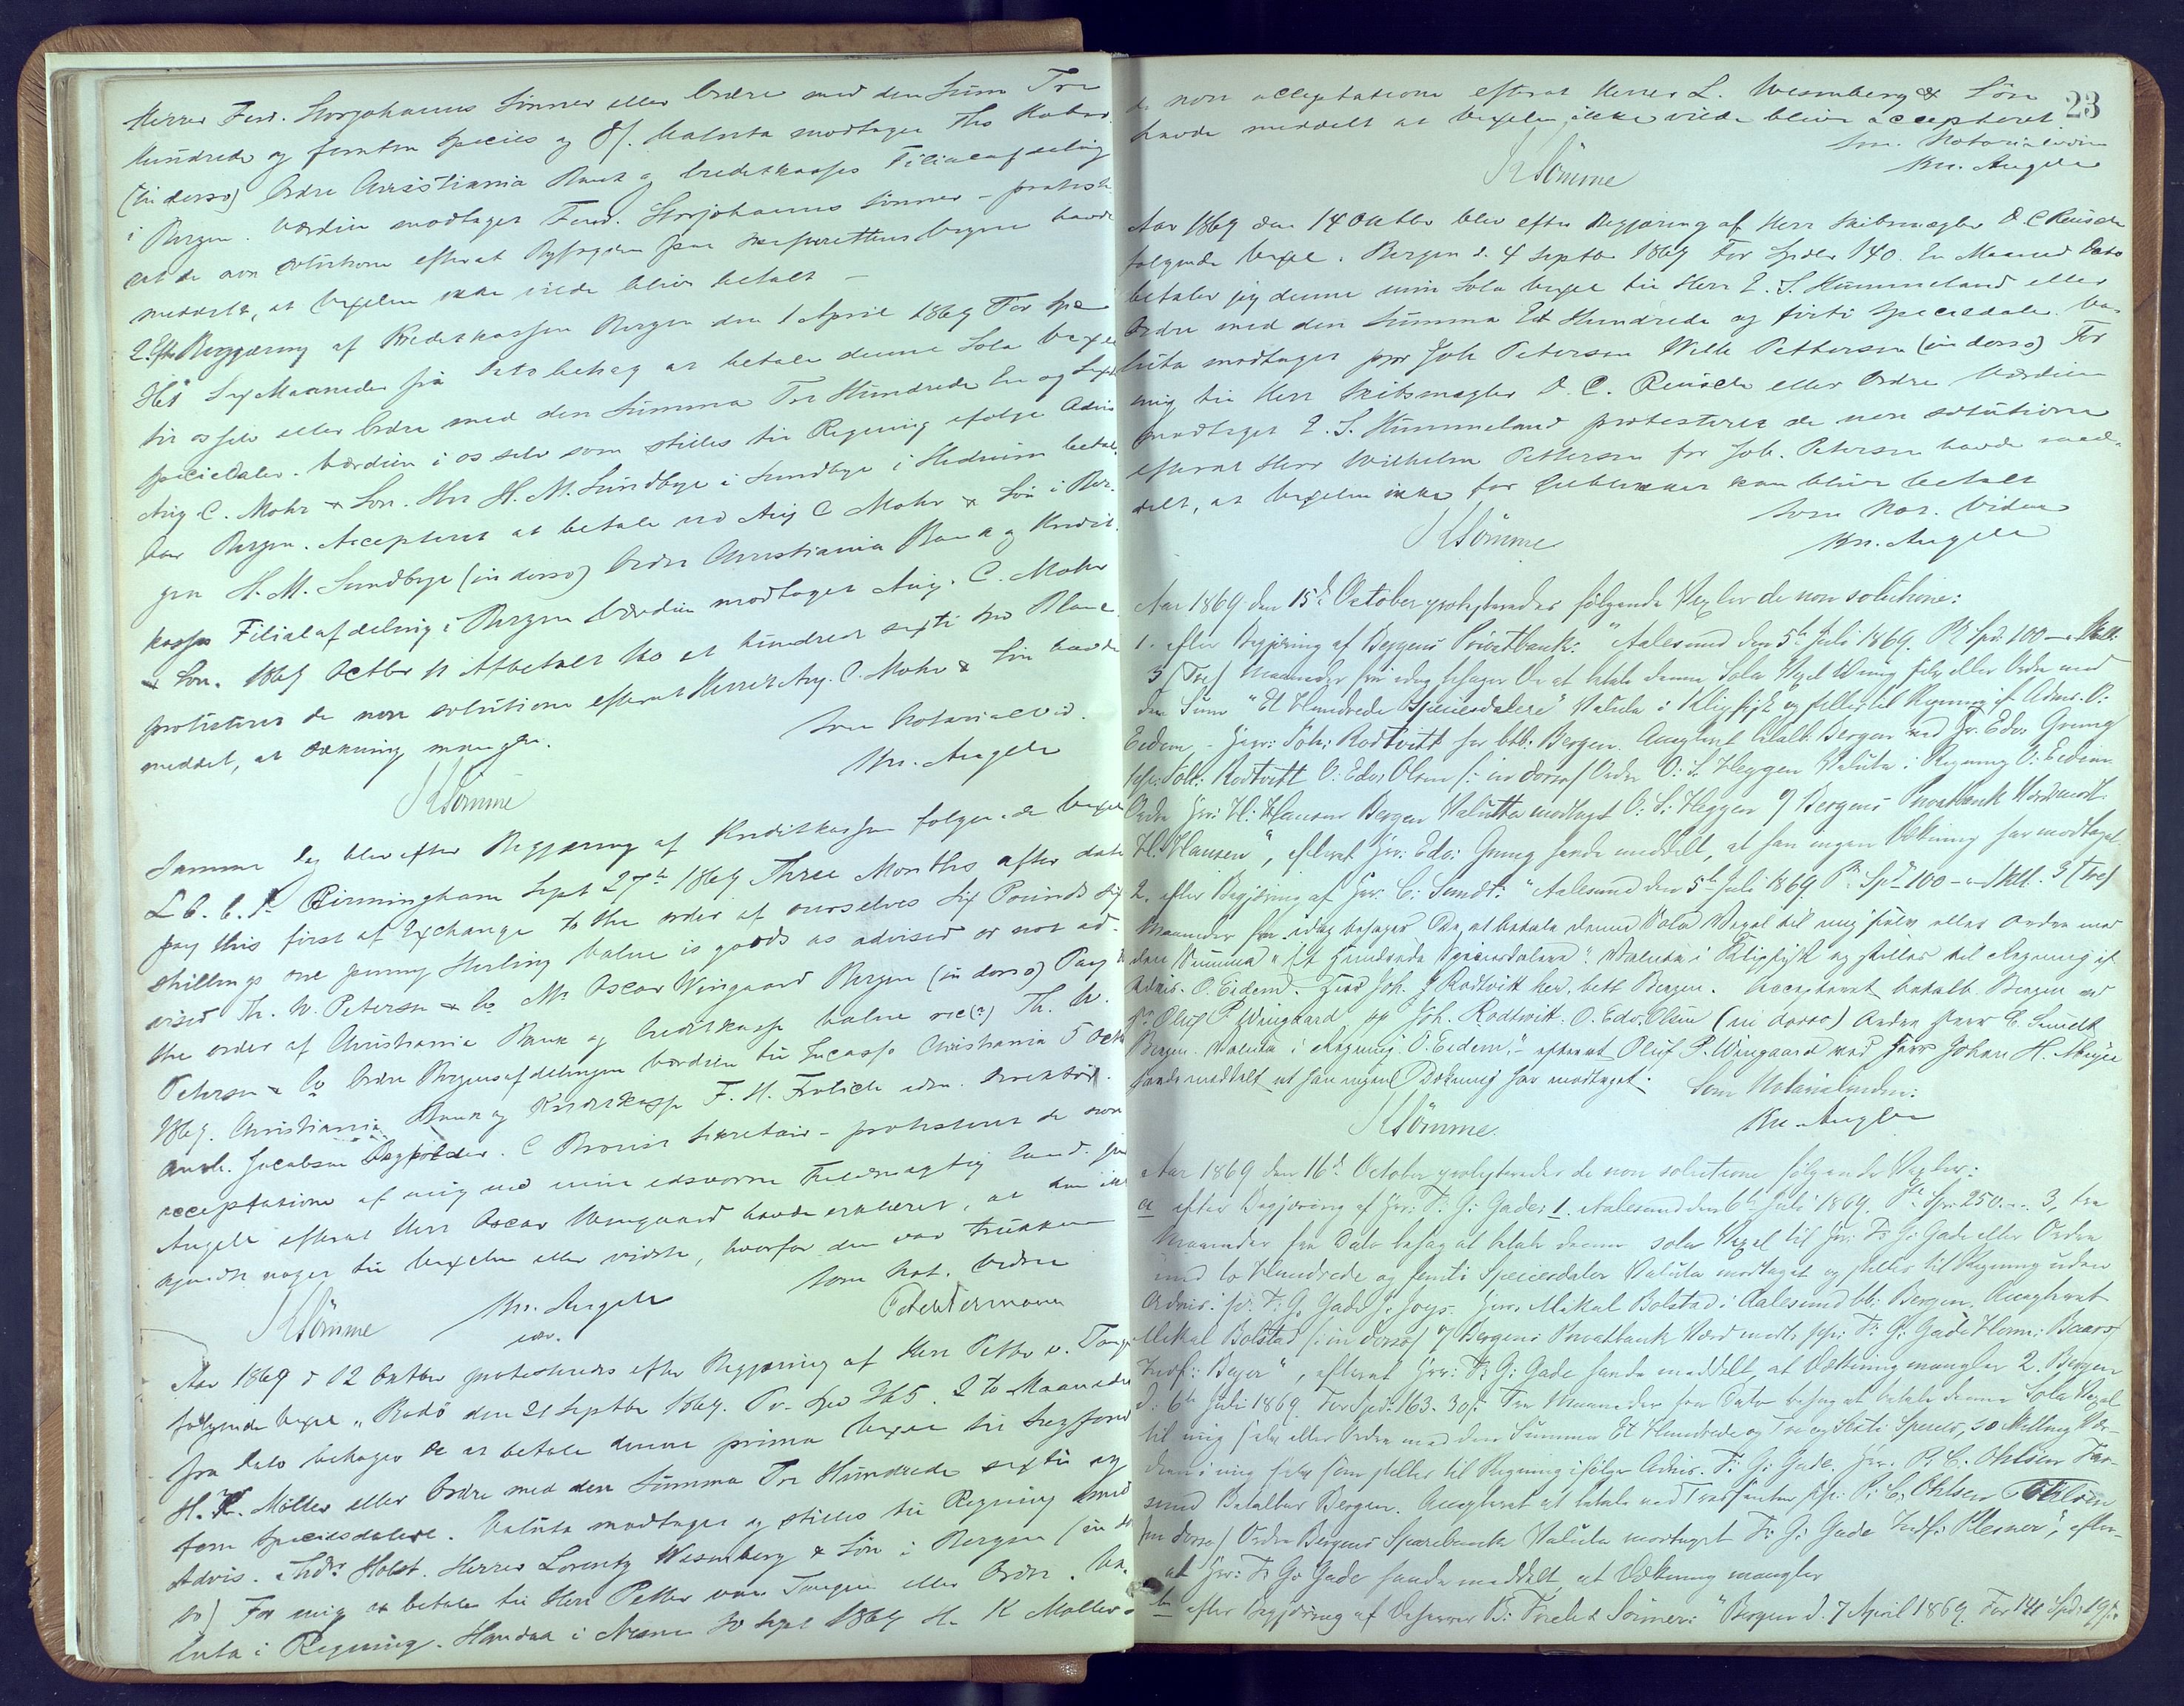 Herrer Ferd. Storjohanns Sønner eller Ordre med den Sum Tre
Hundrede og femten Species og 8 f. Valuta modtaget Ths
(in dorso) Ordre Christiania Bank og Creditkasses Filialafdeling
i Bergen. Værdien modtaget Ferd. Storjohanns Sønner – protest
de non solutione efterat havde
meddelt, at Vexelen ikke vilde blive betalt –
2. Efter Begjæring af Kreditkassen Bergen den 1 April 1869 For Spd
361 Sex Maaneder fra Dato behag at betale denne Sola Vexel
til os selv eller Ordre med den Summa Tre Hundrede En og Sexti
speciedaler. Værdien i os selv som stilles til Regning ifølge Advis
Aug C. Mohr & Søn. Hr H. M. Sundbye i Sundbye i Hedrum betal-
bar Bergen. Accepteret at betale ved Aug C Mohr & Søn i Ber-
gen H. M. Sundbye (in dorso) Ordre Christiania Bank og Kredit-
kasses Filialafdeling i Bergen Værdien modtaget Aug. C. Mohr
& Søn. 1869 Octbr 11 Afbetalt 160 et hundrede sexti
protesteret de non solutione efterat Herrer Aug. C. Mohr & Søn havde
meddelt, at Dækning mangler.
Som Notarialvid.
Kn. Angell
KSömme
Samme Dag blev efter Begjæring af Kreditkassen følgende Vexel
£ 6. 6. 1 Birmingham Sept 27th 1869 Three Months after date
pay this first of Exchange to the order of ourselves Six Pounds six
shillings one penny Sterling value is goods as advised or not ad-
vised Th. W. Petersen & Co Mr Oscar Wingaard Bergen (in dorso) Pay
the order of Christiania Bank og Creditkasse value rec(?) Th. W.
Petersen & Co Ordre Bergensafdelingen værdien til Incasso Christiania 5 Octb
1869. Christiania Bank og Kreditkasse F. H. Frölich adm. Direktör.
Jacobsen Bogholder. C Secretair – protesteret de non
acceptatione af mig ved min edsvorne Fuldmægtig
Angell efterat Herr Oscar Wingaard havde erklæret, at han ikke
kjendte noget til Vexelen eller vidste, hvorfor den var trukken
Som Not. Vidne
KSömme Kn. Angell
edsv.
Aar 1869 d 12 Oktbr protesteredes efter Begjæring af Herr Petter v. Tangen
følgende Vexel „Bodö den 21 Septbr 1869. Pr. Spd 365. 2 to Maaneder
fra Dato behager De at betale denne prima Vexel til Sigfred
H. K. Møller eller Ordre med den Summa Tre Hundrede sexti og
fem Speciesdalere. Valuta modtaget og stilles til Regning med
Advis. Holst. Herrer Lorentz Wesenberg & Søn i Bergen (in dor-
so) For mig at betale til Herr Petter von Tangen eller Ordre. Va-
luta i Regning. i Nesne 30 Sept 1869 H K Møller
23
de non acceptatione efterat Herrer L. Wesenberg & Søn
havde meddelt at Vexelen ikke vilde blive accepteret.
Som Notarialvidne
Kn. Angell
KSömme
Aar 1869 den 14 Oktbr blev efter Begjæring af Herr Skibsmægler D. C Reusch
følgende Vexel. Bergen d. 4 Septbr 1869 For Spdlr 140. En Maaned Dato
betaler jeg denne min Sola Vexel til Herr E. S. Hummeland eller
Ordre med den Summa Et Hundrede og firti speciedaler. Va-
luta modtaget for Joh Petersen Wilh Pettersen (in dorso) For
mig til Herr Skibsmægler D. C. Reusch eller Ordre Værdien
modtaget E. S. Hummeland protesteret de non solutione
efterat Herr Wilhelm Pettersen for Joh. Petersen havde med-
delt, at Vexelen ikke for kan blive betalt
Som Not. Vidne
Kn. Angell
KSömme
Aar 1869 den 15de October protesteredes følgende Vexler de non solutione:
1. efter Begjæring af Bergens Privatbank: "Aalesund den 5te Juli 1869. Pr Spd. 100 – Skill.
3 (Tre) Maaneder fra idag behager De at betale denne Sola Vexel til mig selv eller Ordre med
den Sum "Et Hundrede Speciesdalere" Valuta i Klipfisk og stilles til Regning if Advis. O.
Eidem. – Herr: Joh: Rodtvitt her btb. Bergen. Accepteret betalb. Bergen ved Hr. Edv. Grung
Joh: Rodtvitt O: Edv: Olsen (: in dorso) Ordre O: S. Heggen Valuta i Regning O: Eidem
Ordre Hr: H: Hansen Bergen Valutta modtaget O: S: Heggen Bergens Privatbank Værd. modt.
H: Hansen", efterat Hr: Edv: Grung havde meddelt, at han ingen Dækning har modtaget
2. efter Begjæring af Hr: C: Sundt: "Aalesund den 5te Juli 1869. Pr Spd 100 – Skill. 3 (tre)
Maaneder fra idag behager De at betale denne Sola Vexel til mig selv eller ordre med
den Summa "Et Hundrede Speciesdalere". Valuta i Klipfisk og stilles til Regning if
Advis. O. Eidem. Herr Joh. J Rodtvitt her, betb Bergen. Accepteret betalb. Bergen ved
Hr Oluf P Wingaard Joh. Rodtvitt. O. Edv. Olsen (in dorso) Ordre Herr C. Sundt
Bergen. Valuta i Regning. O. Eidem." – efterat Oluf P. Wingaard ved Herr Johan H. Meyer
havde meddelt at han ingen Dækning har modtaget.
Som Notarialvidne:
Kn. Angell
KSömme.
Aar 1869 den 16de October protesteredes de non solutione følgende Vexler:
a efter Begjæring af Hr: F: G: Gade: 1. Aalesund den 6te Juli 1869. Pr. Spr: 250. – 3, tre
Maaneder fra Dato behag at betale denne sola Vexel til Hr: F: G: Gade eller Ordre
med to Hundrede og femti Speciesdaler Valuta modtaget og stilles til Regning uden
Advis: pr. F: G. Gade J. Joys. Herr Mikal Bolstad i Aalesund bb: Bergen. Accepteret
Mikal Bolstad (: in dorso) Bergens Privatbank Værd modt. F: G: Gade Herm: Baars
Indf: Beyer", efterat Hr: F: G: Gade havde meddelt, at Dækning mangler 2. Bergen
d: 6te Juli 1869. For Spd. 163. 30 f. Tre Maaneder fra Dato behag at betale denne Sola Vexel
til mig selv eller Ordre med den Summa Et Hundrede og Tre og Sexti Species, 30 Skilling Vær-
dien i mig selv som stilles til Regning ifølge Advis. F: G: Gade. Hr. P. C. Ohlsen Far-
sund Betalbar Bergen. Accepteret at betale ved Trassenten P. C. Ohlsen
(in dorso) Ordre Bergens Sparebank Valuta modtaget F: G: Gade Indf: Plesner", efter-
at Hr: F: G: Gade havde meddelt, at Dækning mangler
b efter Begjæring af Dhrr B: Friele & Sønner: "Bergen d. 7 April 1869. For 141 Spd: 19 f.